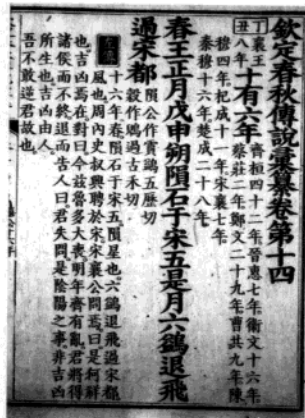 欽定春秋傳說彙纂卷第十四
丁丑
襄王八年
十有六年
齊桓四十二年晉惠七年衛文十六年
蔡莊二年鄭文二十九年曹共九年陳
穆四年杞成十一年宋襄七年
秦穆十六年楚成二十八年
春王正月戊申朔隕石于宋五是月六鷁退飛
過宋都
隕公作霣鷁五歷切
穀作鶂過古禾切
左傳
十六年春隕石于宋五隕星也六鷁退飛過宋都
風也周內史叔興聘於宋宋襄公問焉曰是何祥
也吉凶焉在對曰今茲魯多大喪明年齊有亂君將得
諸侯而不終退而告人曰君失問是陰陽之事非吉凶
所生也吉凶由人
吾不敢逆君故也